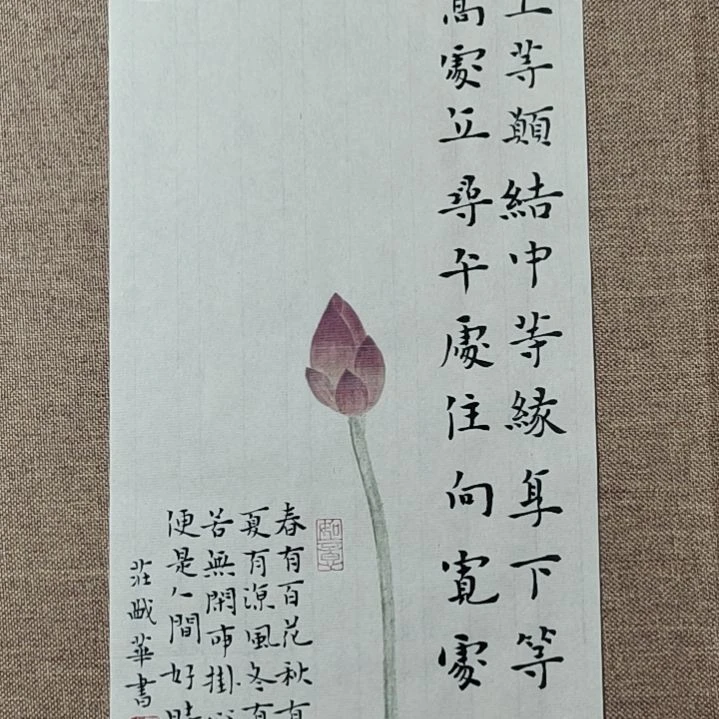 上等願結中等緣享下等
高處立尋平處住向寬處
如意
春有百花秋有
夏有涼風冬有
若無閑事掛心
便是人間好時
莊華書